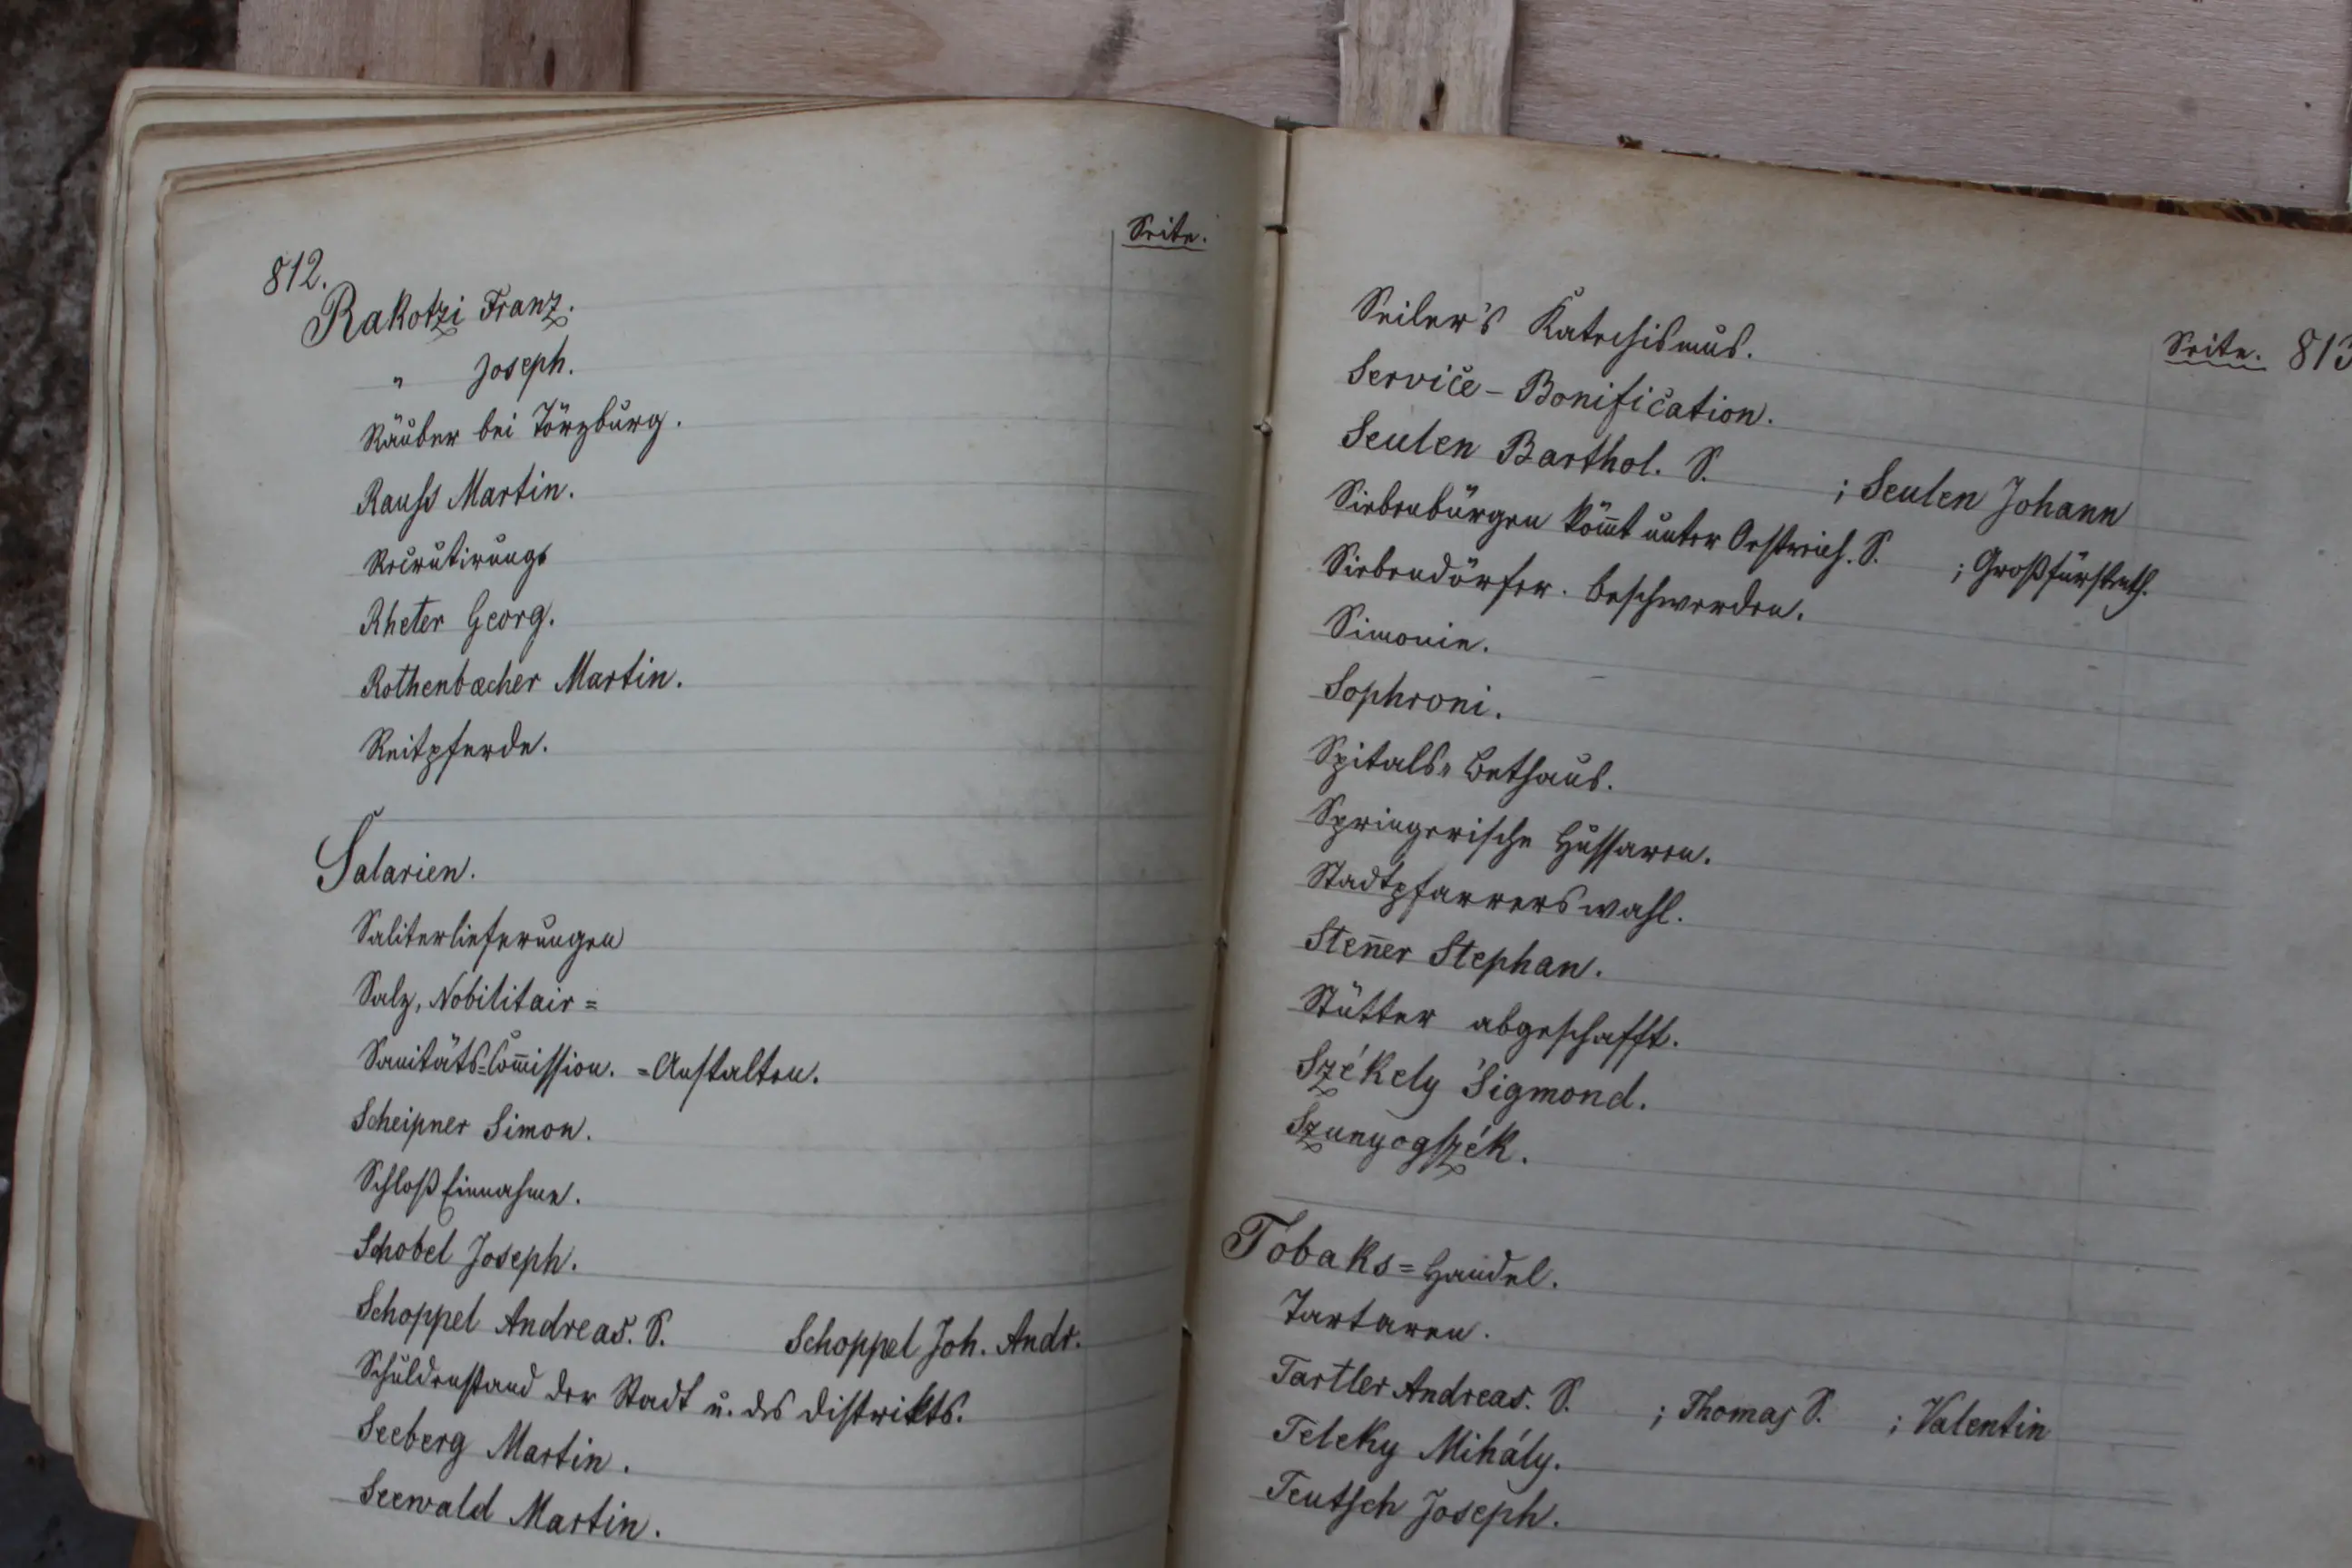 812.
Seite.
Rakotzi Franz.
" Joseph.
Räuber bei Törzburg.
Rauss Martin.
Recrutirungs
Rheter Georg.
Rothenbæcher Martin.
Reitpferde.
Salarien.
Saliterlieferungen
Salz, Nobilitair =
Sanitäts=Com̅ission. =Anstalten.
Scheipner Simon.
Schloß Einnahme.
Schobel Joseph.
Schoppel Andreas. S. Schoppel Joh. Andr.
Schuldenstand der Stadt u. des Distrikts.
Seeberg Martin.
Seewald Martin.
Seite. 813
Seiler's Katechismus.
Service-Bonification.
Seulen Barthol. S. ; Seulen Johann
Siebenbürgen köm̅t unter Oestreich. S. ; Großfürstenth.
Siebendörfer. Beschwerden.
Simonie.
Sophroni.
Spitals= Bethaus.
Springerische Hussaren.
Stadtpfarrerswahl.
Sten̅er Stephan.
Stütter abgeschafft.
Székely Sigmond.
Szunyogszék.
Tobaks=Handel.
Tartaren.
Tartler Andreas. S. ; Thomas S. ; Valentin
Teleky Mihály.
Teutsch Joseph.